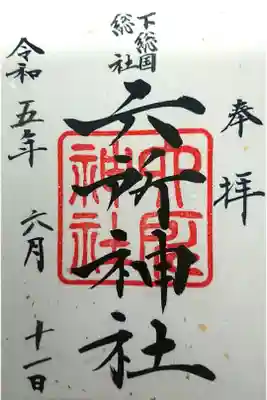 奉拝
下総国
総社
六所神社
令和五年六月十一日
六所神社